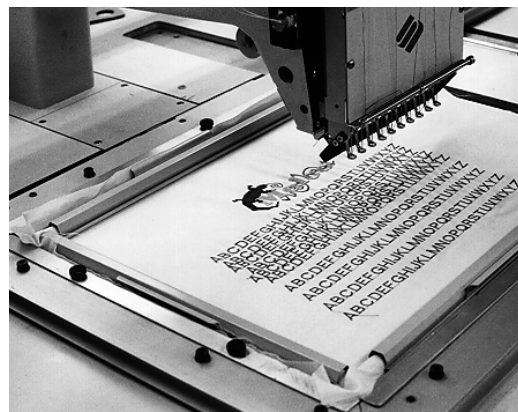 ABCDEFGHIJKLMNOPQRSTUVWXYZ
ABCDEFGHIJKLMNOPQRSTUVWXYZ
ABCDEFGHIJKLMNOPQRSTUVWXYZ
ABCDEFGHIJKLMNOPQRSTUVWXYZ
ABCDEFGHIJKLMNOPQRSTUVWXYZ
ABCDEFGHIJKLMNOPQRSTUVWXYZ
ABCDEFGHIJKLMNOPQRSTUVWXYZ
ABCDEFGHIJKLMNOPQRSTUVWXYZ